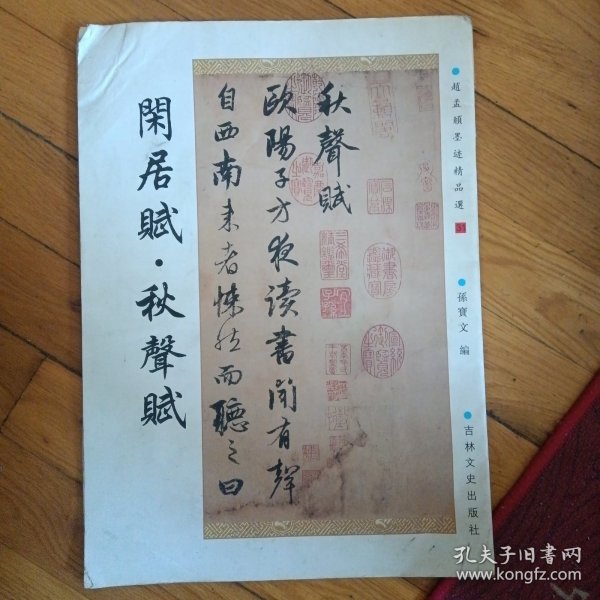 趙孟頫墨迹精品選 31
孫寶文 編
吉林文史出版社
秋聲賦
歐陽子方夜读書闻有聲
自西南来者悚然而聽之曰
閑居賦·秋聲賦
孔夫子旧書网
www.kongfz.com